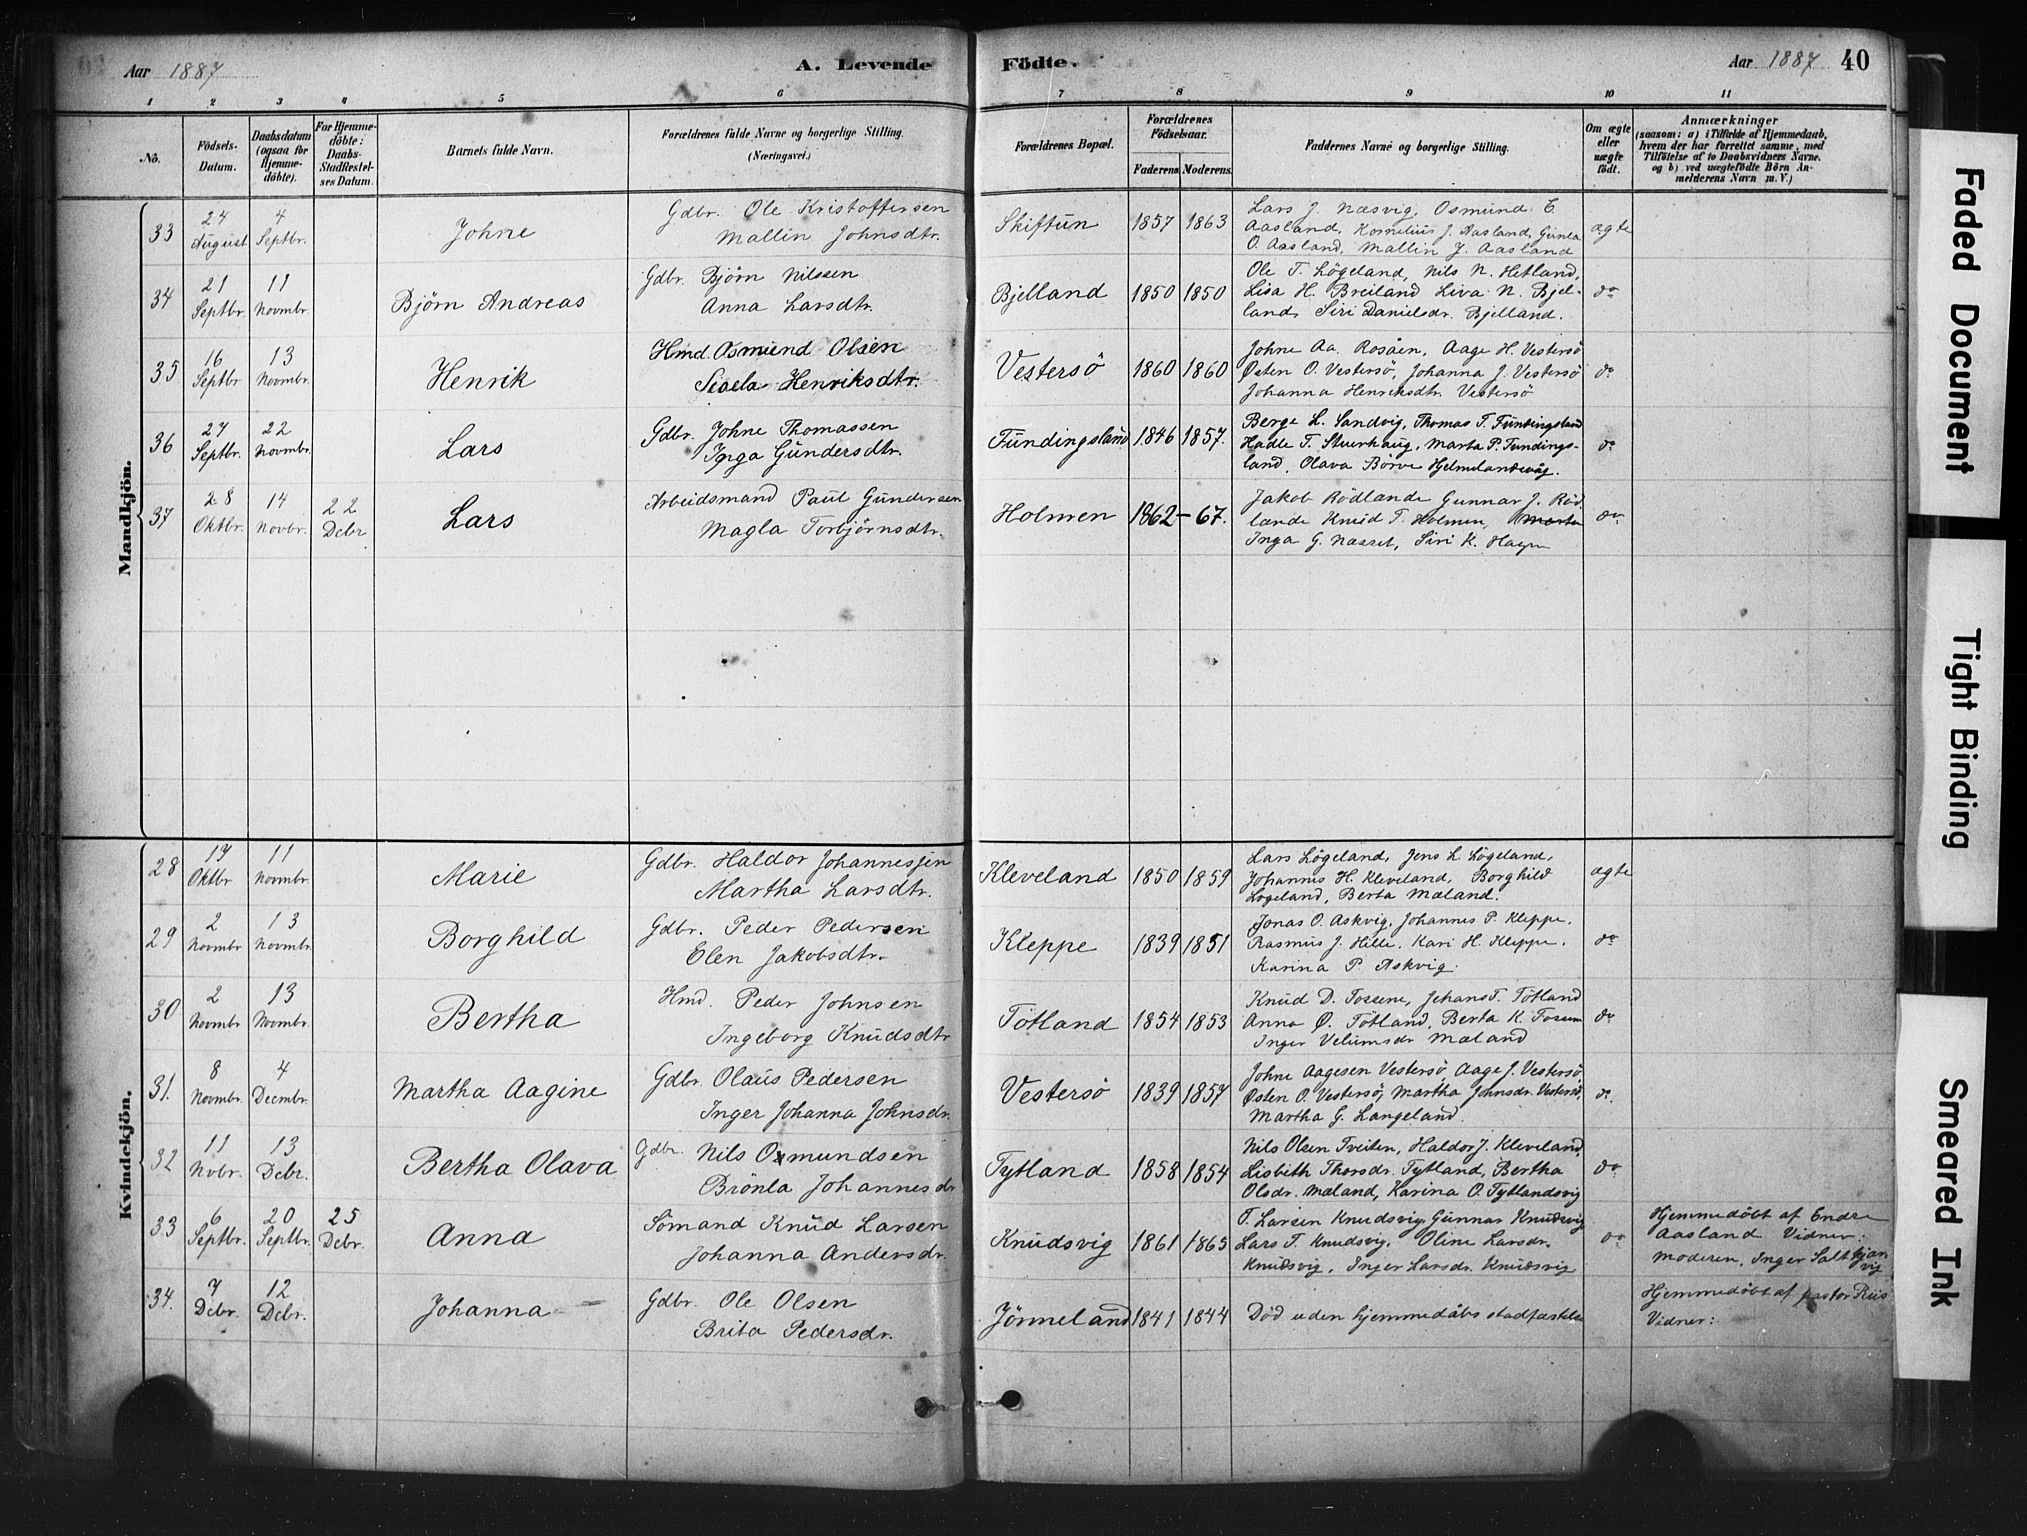 Aar 1887 A. Levende Födte. Aar 1887 40
1 2 3 4 5 6 7 8 9 10 11
No.
Födsels-Datum.
Daabsdatum (ogsaa for Hjemme-döbte).
For Hjemme-döbte: Daabs-Stadfæstel-ses Datum.
Barnets fulde Navn.
Forældrenes fulde Navne og borgerlige Stilling. (Næringsvei.)
Forældrenes Bopæl.
Forældrenes Födselsaar.
Faderens Moderens
Faddernes Navne og borgerlige Stilling.
Om ægte eller uægte födt.
Anmærkninger
(saasom: a) i Tilfælde af Hjemmedaab,
hvem der har forrettet samme, med
Tilföielse af to Daabsvidners Navne.
og b) ved uægtefödte Börn An-
melderens Navn m. V.)
Mandkjön.
33 24 August 4 Septbr. Johne Gdbr. Ole Kristoffersen
Mallin Johnsdtr. Skiftun 1857 1863 Lars J. Næsvig, Osmund E.
Aasland, Kornelius J. Aasland, Gunla ægte
O. Aasland, Mallin J. Aasland
34 21 Septbr. 11 Novmbr. Björn Andreas Gdbr. Björn Nilssen
Anna Larsdtr. Bjelland 1850 1850 Ole T. Lögeland, Nils N. Hetland,
Lisa H. Breiland Liva N. Bjel- do
land, Siri Danielsdr. Bjelland.
35 16 Septbr 13 Novmbr. Henrik Hmd. Osmund Olsen
Henriksdtr. Vestersö 1860 1860 Johne Aa. Rosåen, Aage H. Vestersö
Østen O. Vestersö, Johanna J. Vestersö do
Johanna Henriksdtr Vestersö
36 27 Septbr. 22 Novmbr. Lars Gdbr. Johne Thomassen
Inga Gundersdtr. Fundingsland 1846 1857. Berge L. Sandvig, Thomas T. Fundingsland
Hadle T. Stuerhaug, Marta P. Fundings- do
land, Olava Börve Hjelmelandsvåg.
37 28 Oktbr. 14 Novbr. 22 Debr Lars Arbeidsmand Paul Gundersen
Magla Torbjörnsdtr. Holmen 1862 – 67. Jakob Rödlande Gunnar J. Röd
lande Knud T. Holmen, Marta do
Inga G. Nasset, Siri K. Hagen
Kvindekjön.
28 17 Oktbr 11 Novmbr. Marie Gdbr. Haldor Johannessen
Martha Larsdtr. Kleveland 1850 1859 Lars Lögeland, Jens L. Lögeland,
Johannes H. Kleveland, Borghild ægte
Lögeland, Berta Mæland.
29 2 Novmbr 13 Novmbr. Borghild Gdbr. Peder Pedersen
Elen Jakobsdtr. Kleppe 1839 1851 Jonas O. Askvig, Johannes P. Kleppe.
Rasmus J. Hille. Kari H. Kleppe. do
Karina P. Askvig.
30 2 Novmbr 13 Novmbr. Bertha Hmd. Peder Johnsen
Ingeborg Knudsdtr Tötland 1854 1853 Knud D. Tossene, Johans T. Tötland
Anna Ø. Tötland, Berta K. do
Inger Velumsdr Mæland
31. 8 Novmbr. 4 Decmbr. Martha Aagine Gdbr. Olaus Pedersen
Inger Johanna Johnsdr. Vestersö 1839 1857 Johne Aagesen Vestersö, Aage J. Vestersö,
Østen O. Vestersö, Martha Johnsdr. Vestersö, do.
Martha G. Langeland.
32 11 Nvbr. 13 Debr. Bertha Olava Gdbr. Nils Osmundsen
Brönla Johannesdr Tytland 1858 1854 Nils Olsen Tveiten, Haldor J. Kleveland,
Lisbith Thorsdr. Tytland, Bertha do
Olsdr. Mæland, Karina O. Tytlandsvig
33 6 Septbr. 20 Septbr. 25 Debr. Anna Sömand Knud Larsen
Johanna Andersdr. Knudsvig 1861 1865 T. Larsen Knudsvig, Gunnar Knudsvig
Lars T. Knudsvig, Oline Larsdr. do
Knudsvig, Inger Larsdr. Knudsvig
Hjemmedöbt af Endre
Aasland Vidner:
Moderen, Inger
34. 7 Debr. 12 Debr. Johanna Gdbr. Ole Olsen
Brita Pedersdr. Jönneland 1841 1844 Död uden hjemmedåbs stadfæstelse
Hjemmedöbt af pastor Riis
Vidner:
Faded Document
Tight Binding
Smeared Ink